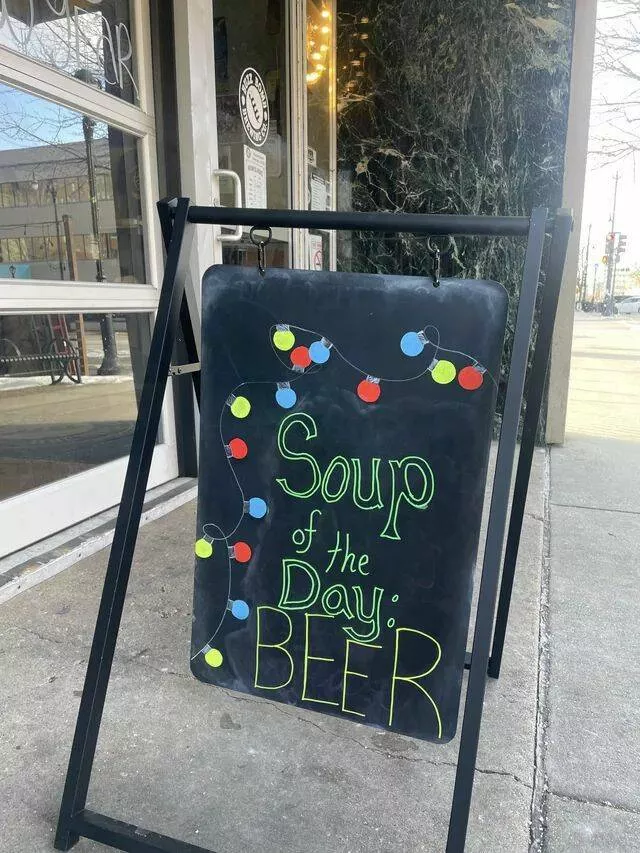 BAR
Soup
of the
Day:
BEER